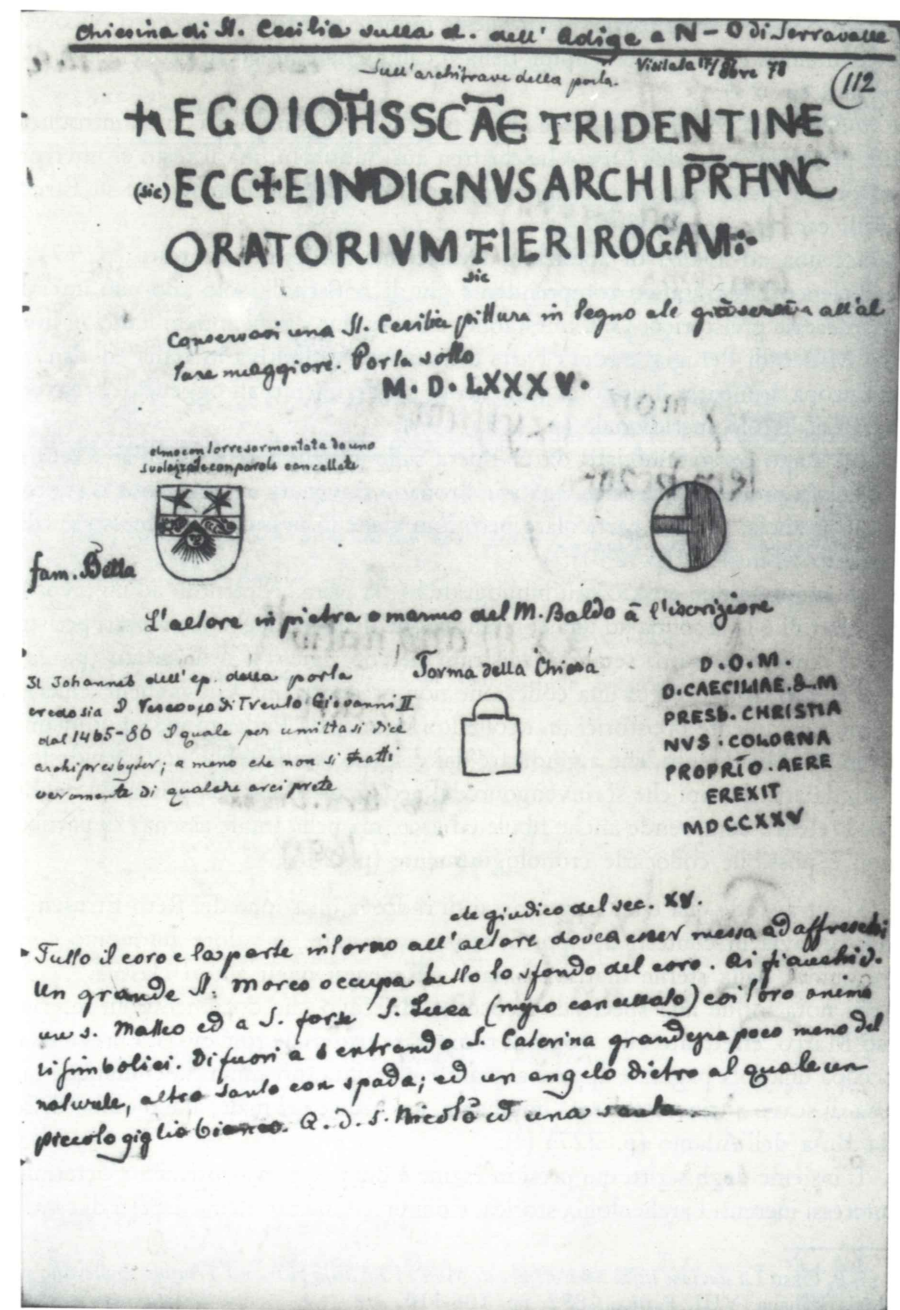 Chiesina di S. Cecilia sulla d. dell' Adige a N-O di Serravalle
Visitata 17/8bre 78
(112
Sull'architrave della porta.
+EGOIOHSSCAE TRIDENTINE
(sic) ECC+EINDIGNVSARCHIPRTHVNC
ORATORIVM FIERIROGAVI
sic
Conservasi una S. Cecilia pittura in legno che già serviva all'al
tare maggiore. Porta sotto
M. D. LXXXV.
elmo con torre sormontata da uno
con parole cancellate
fam. Betta
L'altore in pietra o marmo del M. Baldo à l'iscrizione
Il Johannes dell'ep. della porta
credo sia il Vescovo di Trento Giovanni II
dal 1465-86 Il quale per umiltà si dice
archipresbyter; a meno che non si tratti
veramente di qualche arciprete
Forma della Chiesa
D.O.M.
D.CAECILIAE.&.M
PRESB. CHRISTIA
NVS. COLORNA
PROPRIO. AERE
EREXIT
MDCCXXV
che giudico del sec. XV.
Tutto il coro e la parte intorno all'altore dovea esser messa ad affreschi
Un grande S. Marco occupa tutto lo sfondo del coro. Ai fianchi d.
un s. Matteo ed a S. forse S. Luca (mezzo cancellato) coi loro anima
li simbolici. Di fuori a d entrando S. Caterina grande poco meno del
naturale, altro santo con spada; ed un angelo dietro al quale un
piccolo giglio bianco. A. d. s. Nicolò ed una santa